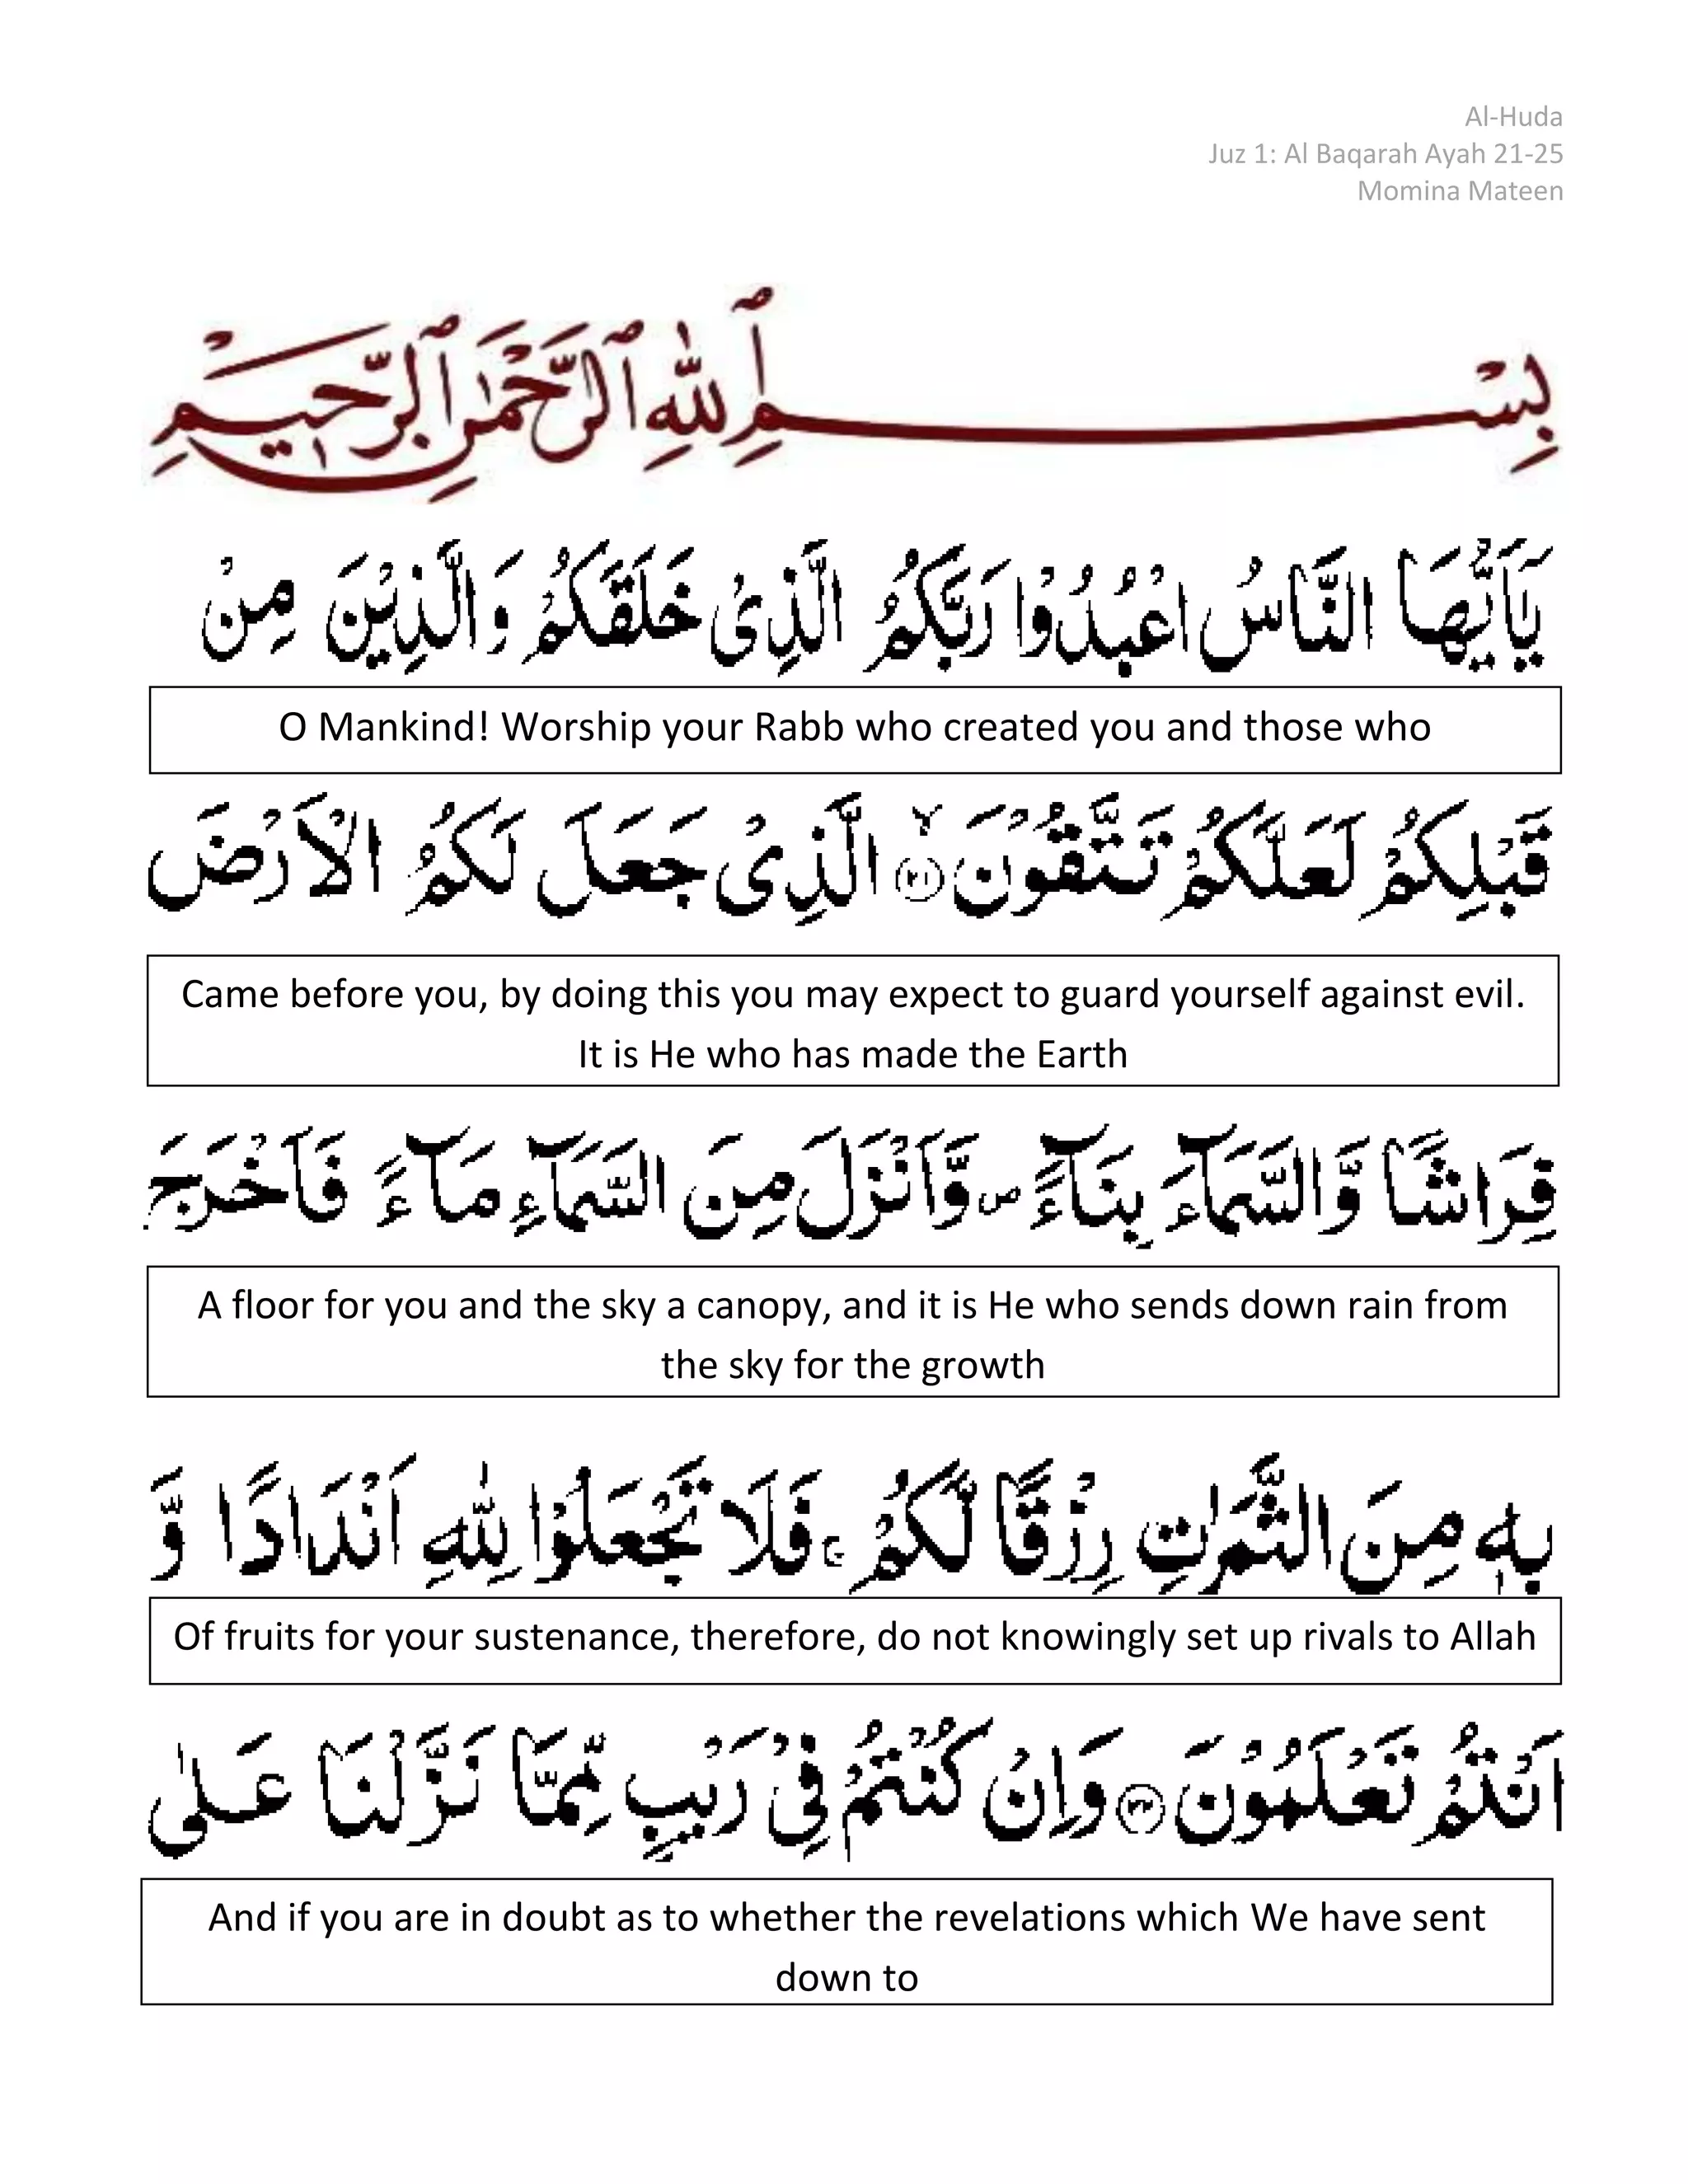 Al-Huda
Juz 1: Al Baqarah Ayah 21-25
Momina Mateen
بِسْمِ ٱللَّهِ ٱلرَّحْمَٰنِ ٱلرَّحِيمِ
يٰۤاَيُّهَا النَّاسُ اعْبُدُوْا رَبَّكُمُ الَّذِىْ خَلَقَكُمْ وَالَّذِيْنَ مِنْ
O Mankind! Worship your Rabb who created you and those who
قَبْلِكُمْ لَعَلَّكُمْ تَتَّقُوْنَ ۙ‏﴿۲۱﴾ الَّذِىْ جَعَلَ لَكُمُ الْاَرْضَ
Came before you, by doing this you may expect to guard yourself against evil.
It is He who has made the Earth
فِرَاشًا وَّالسَّمَآءَ بِنَآءً ص وَّاَنْزَلَ مِنَ السَّمَآءِ مَآءً فَاَخْرَجَ
A floor for you and the sky a canopy, and it is He who sends down rain from
the sky for the growth
بِهٖ مِنَ الثَّمَرٰتِ رِزْقًا لَّكُمْ ۚ فَلَا تَجْعَلُوْا لِلّٰهِ اَنْدَادًا وَّ
Of fruits for your sustenance, therefore, do not knowingly set up rivals to Allah
اَنْتُمْ تَعْلَمُوْنَ ﴿۲۲﴾ وَاِنْ كُنْتُمْ فِىْ رَيْبٍ مِّمَّا نَزَّلْنَا عَلٰى
And if you are in doubt as to whether the revelations which We have sent
down to